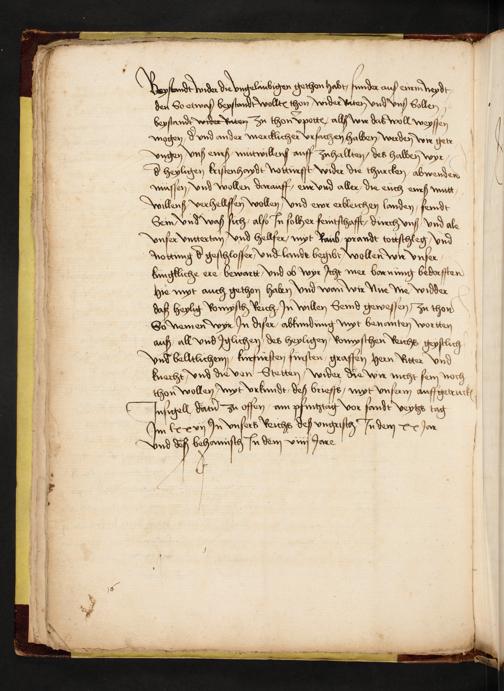 Beystandt wider die ungelaubigen gethon habt sunder auß einem neydt
den So etwaß beystandt wollte thon wider und unß Sollen
beystandt wider zu thon spotte, alß wir daß woll weyssen
mogen, und ander mercklicher ursachen halben werden wir getr
ungen unß eueß mutwillens auff zuhallten, des halben wyr
d heyligen kristenheydt widter die thurcken, abwenden
müssen und wollen darauff, ein und aller die euch eueß mutt
willens verhelffen wollen, und ewr erbleichen landen, feindt
Sein, und waß sich also In solher feintschafft, durch unß, und alle
unser unttertan, und hellfer, myt Raub prandt tottschleg, und
nottung d geschlosser, und landt begibt wollen wir unser
kungliche ere bewartt, und ob wyr Icht mer barnung bedorfften
hie myt auch gethon haben, und wan wir Nie widder
daß heylig Romysch Reich, In willen Send gewessen, zu thon
So nemen wyr In diser, abkundung myt benanten wortten
auß all und Iglichen, des heyligen Romyschen Reichs geystlich
und belltlichenn, kurfursten fursten, graffen hern Ritter und
knecht, und die von Stetten, wider die wir nicht sein noch
thon wollen, myt urkundt des brieffs, myt unserm auffgetruckt
Insigell, datum zu offen, am pfintztag vor sandt veytzs tag
Im lxxvii In unsers Reichs des ungrisch In dem xx Jar
und deß behamisch In dem viiii Jare